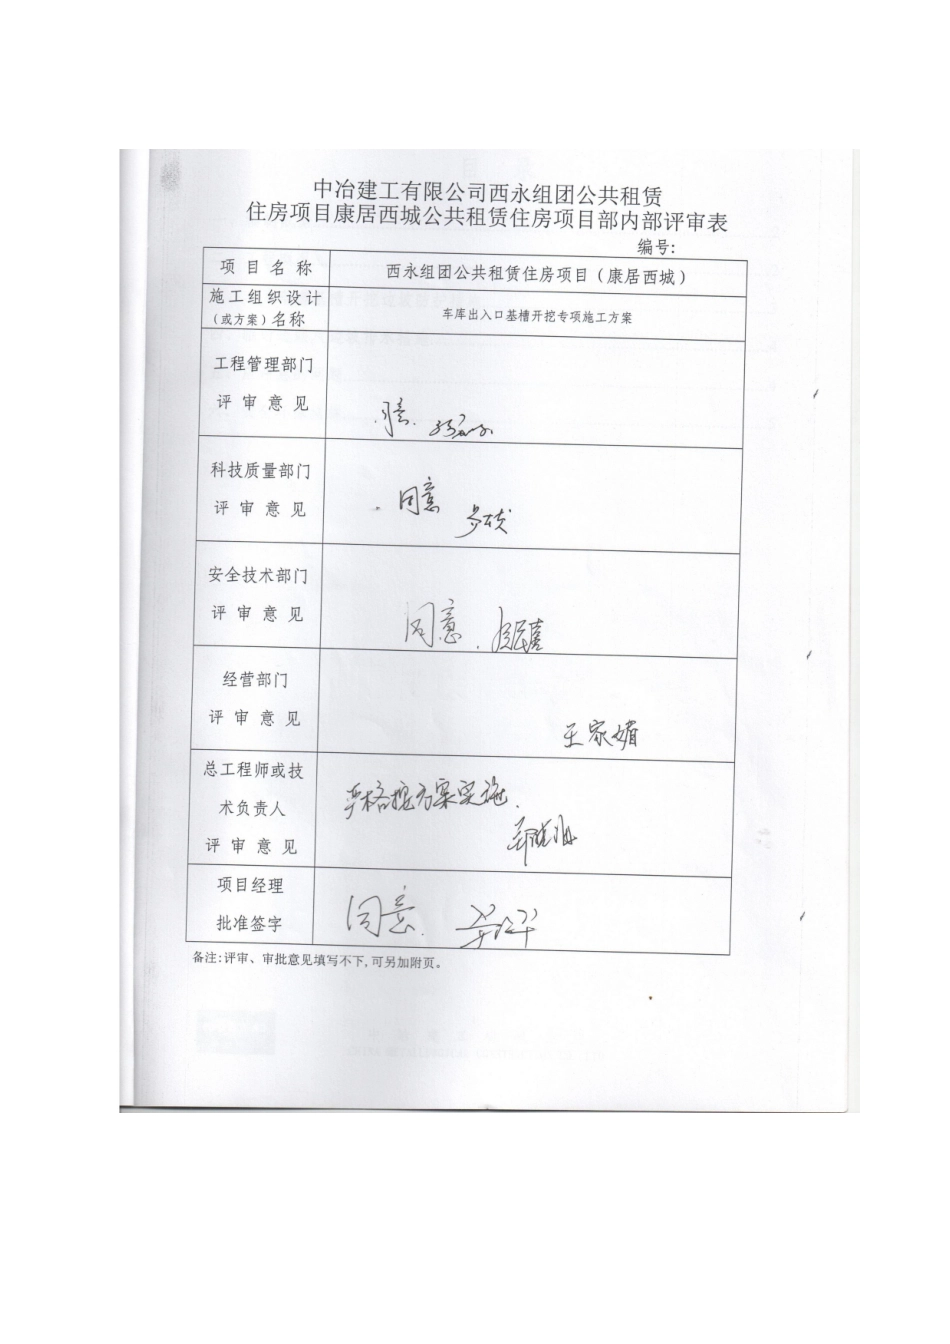 中冶建工有限公司西永组团公共租赁
住房项目康居西城公共租赁住房项目部内部评审表
编号:
项目名称
西永组团公共租赁住房项目(康居西城)
施工组织设计
(或方案)名称
车库出入口基槽开挖专项施工方案
工程管理部门
评审意见
同意.
科技质量部门
评审意见
同意
安全技术部门
评审意见
同意.
经营部门
评审意见
王家媚
总工程师或技
术负责人
评审意见
严格按方案实施.
项目经理
批准签字
同意.
备注:评审、审批意见填写不下,可另加附页。